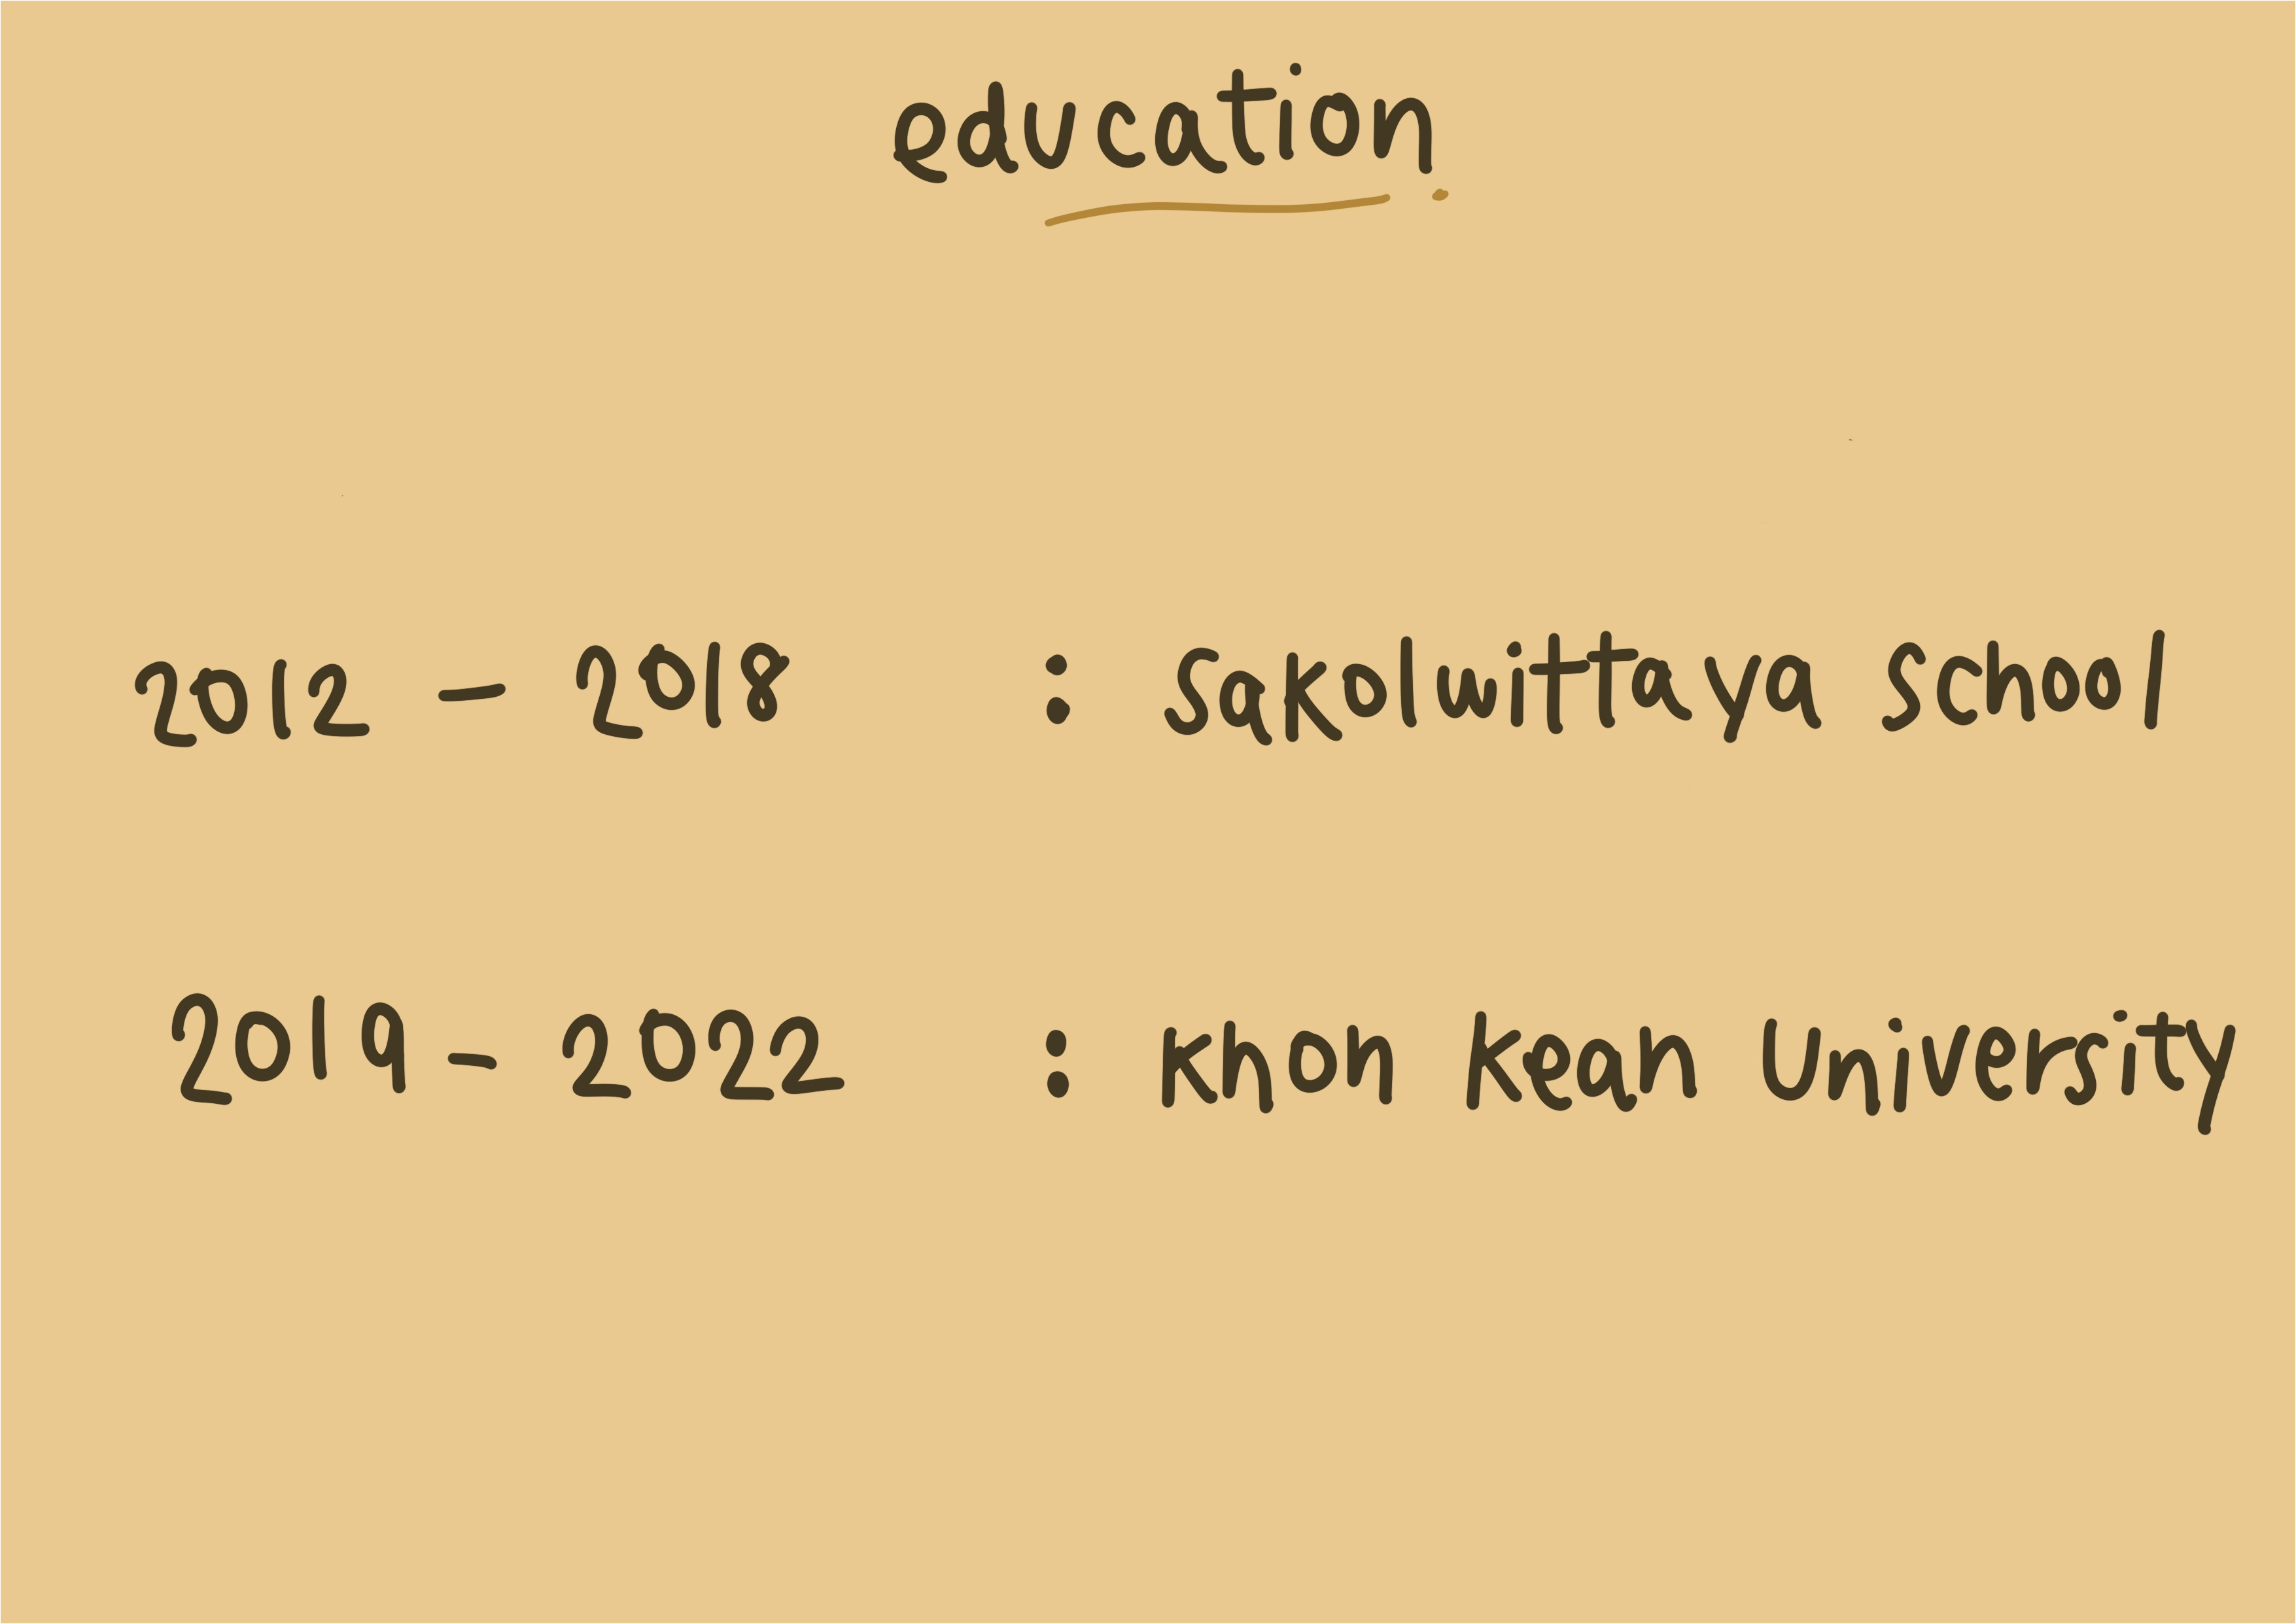 education
2012 - 2018 : Sakolwittaya School
2019 - 2022 : Khon Kean University